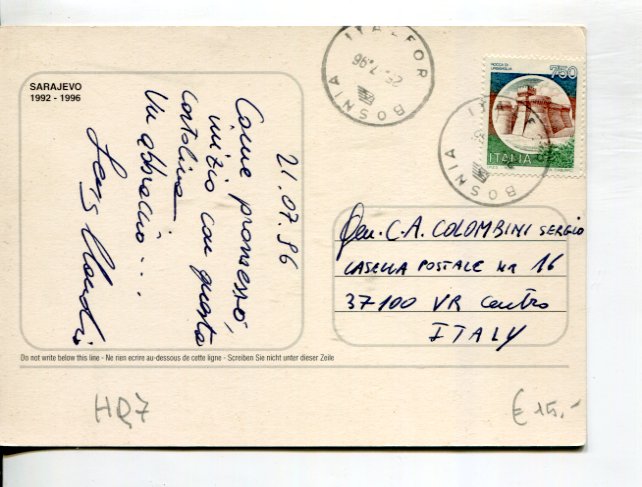 SARAJEVO
1992 - 1996
21.07.96
Come promesso,
inizio con questa
cartolina.
Un abbraccio...
ITALFOR BOSNIA
25.7.96
ROCCA DI
URBISAGLIA
750
ITALIA
BOSNIA
Gen. C.A. COLOMBINI SERGIO
CASELLA POSTALE Nr 16
37100 VR Centro
ITALY
Do not write below this line - Ne rien ecrire au-dessous de cette ligne - Screiben Sie nicht unter dieser Zeile
HQ7
€ 15.-